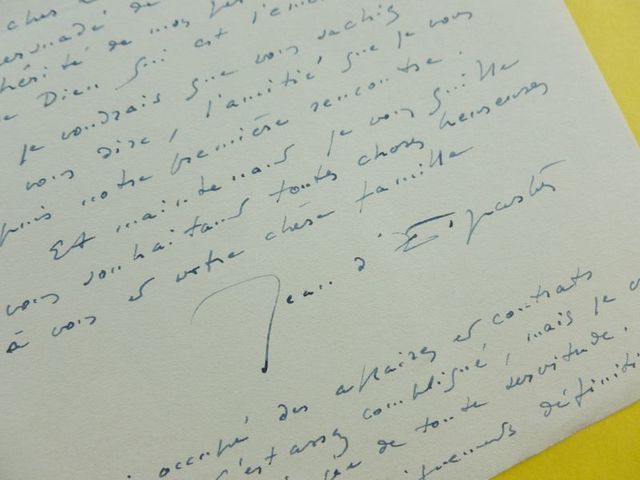 cher
ersuadé de
de
Dieu qui est
Je voudrais que vous sachiez
vous dire, l'amitié que je vous
puis notre première rencontre.
Et maintenant je vous quitte
vous souhaitant toutes choses heureuses
à vous et votre chère famille
Jean d'Esparbès
occupé des affaires et contrats
c'est assez compliqué, mais je v
de toute servitude.
définiti